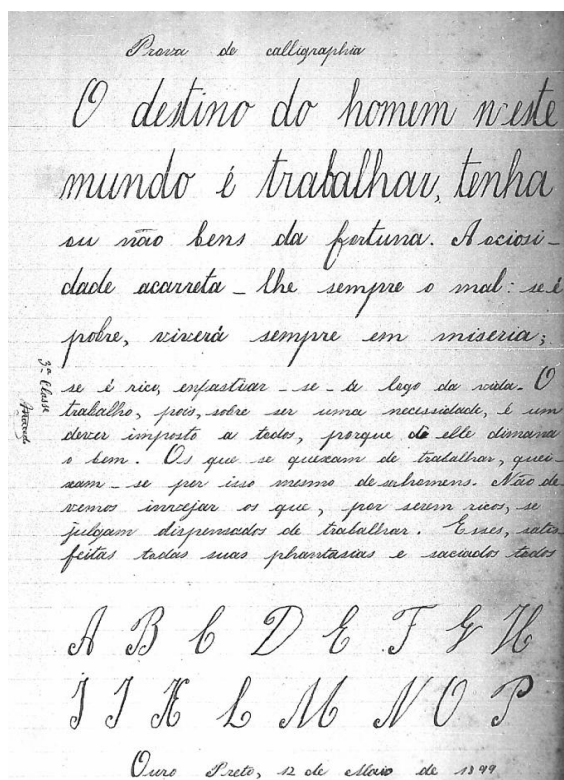 Prova de calligraphia
O destino do homem n'este
mundo é trabalhar, tenha
ou não bens da fortuna. A ociosi-
dade acarreta-lhe sempre o mal: se é
pobre, viverá sempre em miseria;
se é rico, enfastiar-se-á logo da vida. O
trabalho, pois, sobre ser uma necessidade, é um
dever imposto a todos, porque d'elle dimana
o bem. Os que se queixam de trabalhar, quei-
xam-se por isso mesmo de ser homens. Não de-
vemos invejar os que, por serem ricos, se
julgam dispensados de trabalhar. Esses, satis
feitas todas suas phantasias e saciados todos
A B C D E F G H
I J K L M N O P
Ouro Preto, 12 de Maio de 1899
3ª Classe